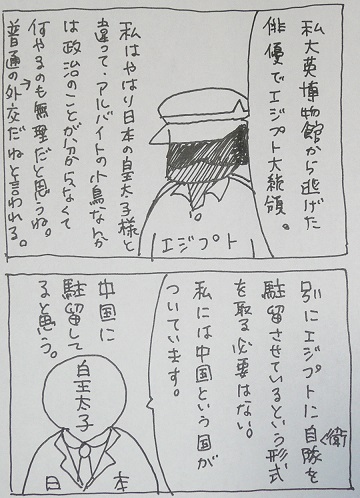 私大英博物館から逃げた
俳優でエジプト大統領。
エジプト
私はやはり日本の皇太子様と
違って・アルバイトの小鳥なんか
は政治のことが分からなくて
何やるのも無理だと思うね。
普通の外交だねと言われる。
別にエジプトに自衛隊を
駐留させているという形式
を取る必要はない。
私には中国という国が
ついています。
中国に
駐留して
ると思う。
皇太子
日本